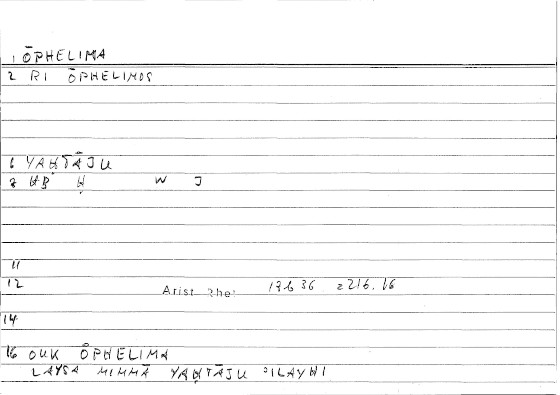 1 ŌPHELIMA
2 RI ŌPHELIMOS
6 YAḤTĀJU
8 ḤB Ḥ W J
11
12 Arist Rhet 1363b 2216.16
14
16 OUK ŌPHELIMA
LAYSA MIMMĀ YAḤTĀJU ʾILAYHI